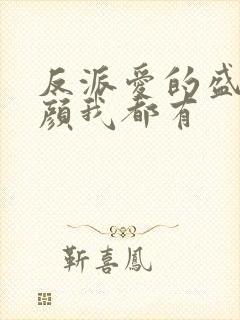 反派愛的盛
顔我都有
靳喜鳳